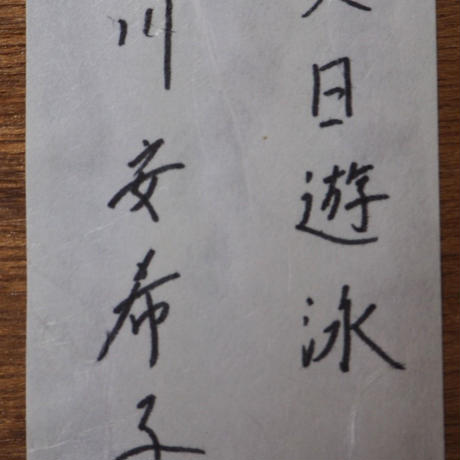 日遊泳
川安希子